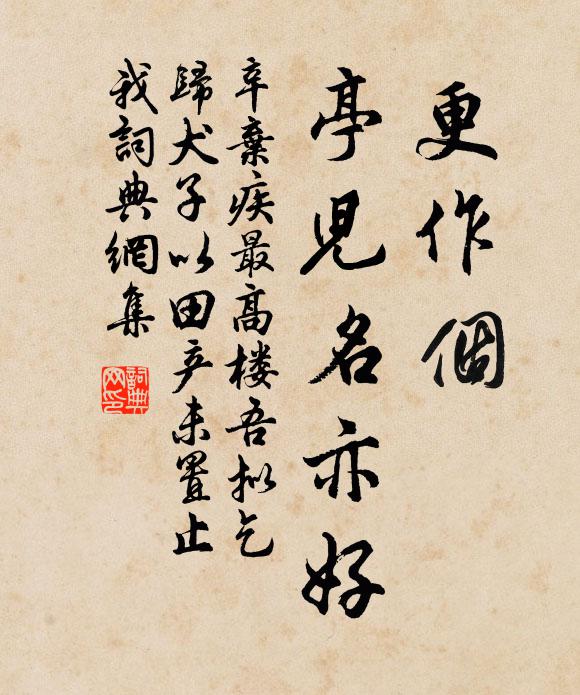 更作個
亭児名亦好
辛棄疾最高楼吾拟乞
歸犬子以田产未置止
我詞典網集
詞典网印